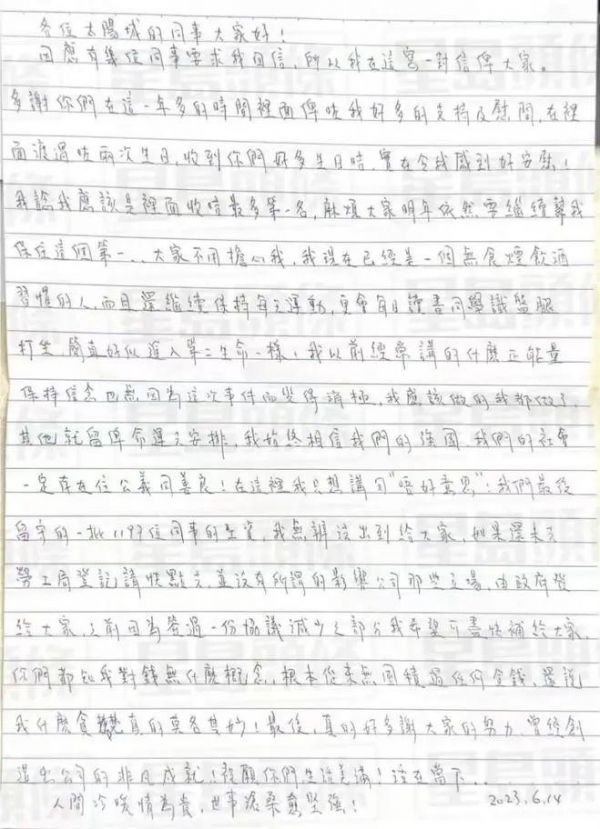 各位太陽城的同事大家好！
因應有幾位同事要求我回信，所以我在這寫一封信俾大家。
多謝你們在這一年多的時間裡面俾咗我好多的支持及慰問，在裡
面渡過咗兩次生日，收到你們好多生日咭，實在令我感到好安慰！
我諗我應該是裡面收咭最多第一名，麻煩大家明年依然要繼續幫我
保住這個第一... 大家不用擔心我，我現在已經是一個無食煙飲酒
習慣的人，而且還繼續保持每天運動，更會每日讀書同學識盤腿
打坐，簡直好似進入第二生命一樣！我以前經常講的什麼正能量
保持信念也無因為這次事件而變得消極，我應該做的我都做了，
其他就留俾命運去安排，我始終相信我們的強國、我們的社會
一定存在住公義同善良！在這裡我只想講句"唔好意思"：我們最後
留守的一批1197位同事的生資，我無辦法出到給大家，如果還未去
勞工局登記請快點去，並沒有所謂的影響公司那些立場，由政府發
給大家，之前因為簽過一份協議減少之部分我希望可盡快補給大家，
你們都知我對錢無什麼概念，根本從來無囤積過任何金錢，還說
我什麼貪婪真的莫名其妙！最後，真的好多謝大家的努力，曾經創
造出公司的非凡成就！祝願你們生活美滿！活在當下...
人間冷暖情為貴，世事滄桑愈堅強！ 2023.6.14